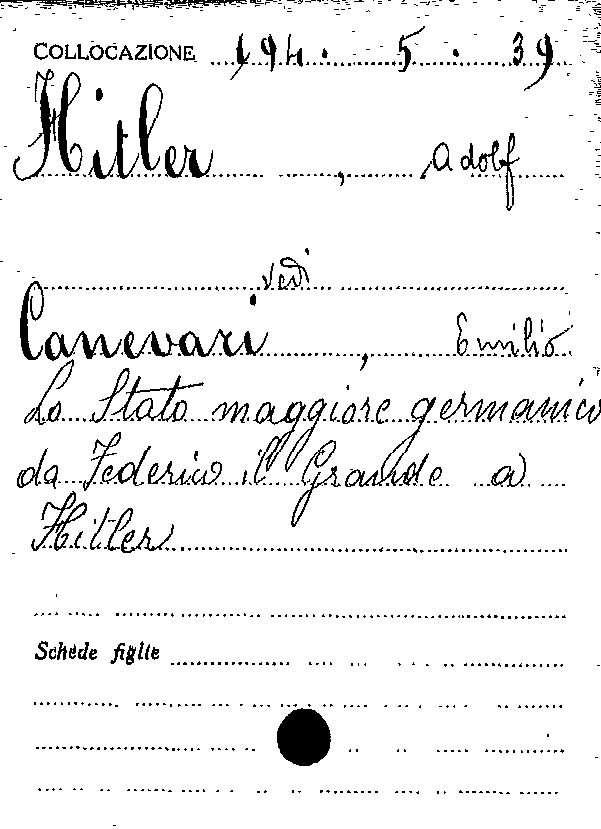 COLLOCAZIONE 194. 5. 39
Hitler, Adolf
vedi
Canevari, Emilio
Lo Stato maggiore germanico
da Federico il Grande a
Hitler
Schede figlie